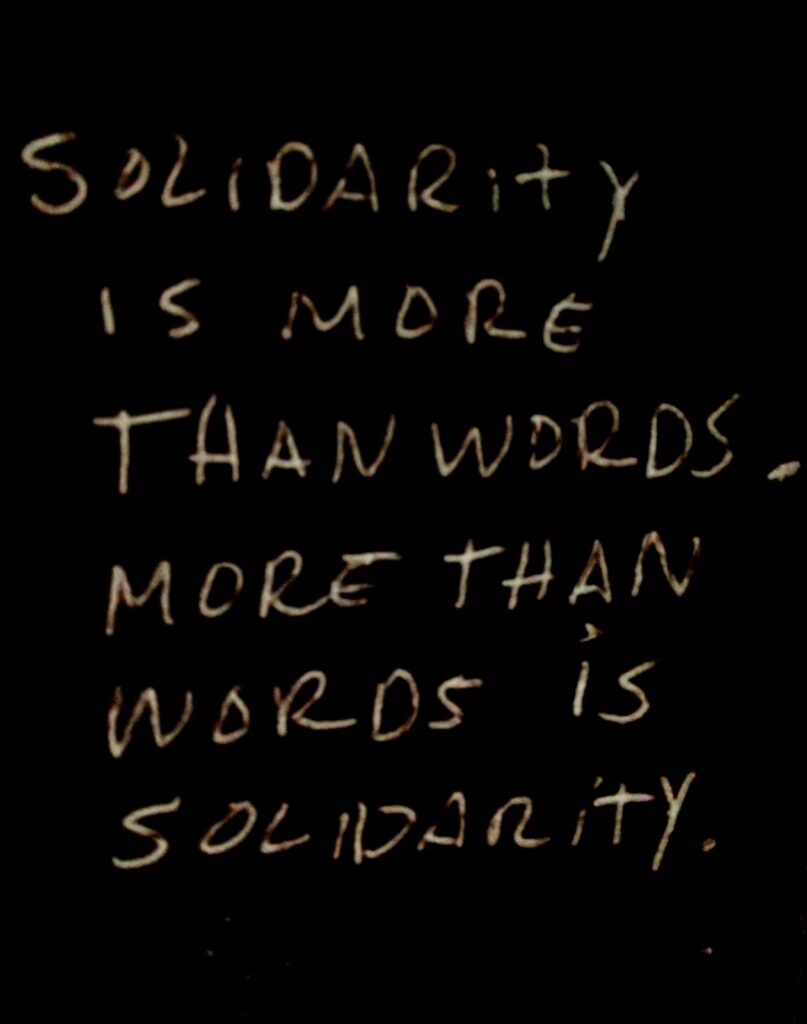 SOLIDARity
IS MORE
THAN WORDS.
MORE THAN
WORDS iS
SOLIDARitY.